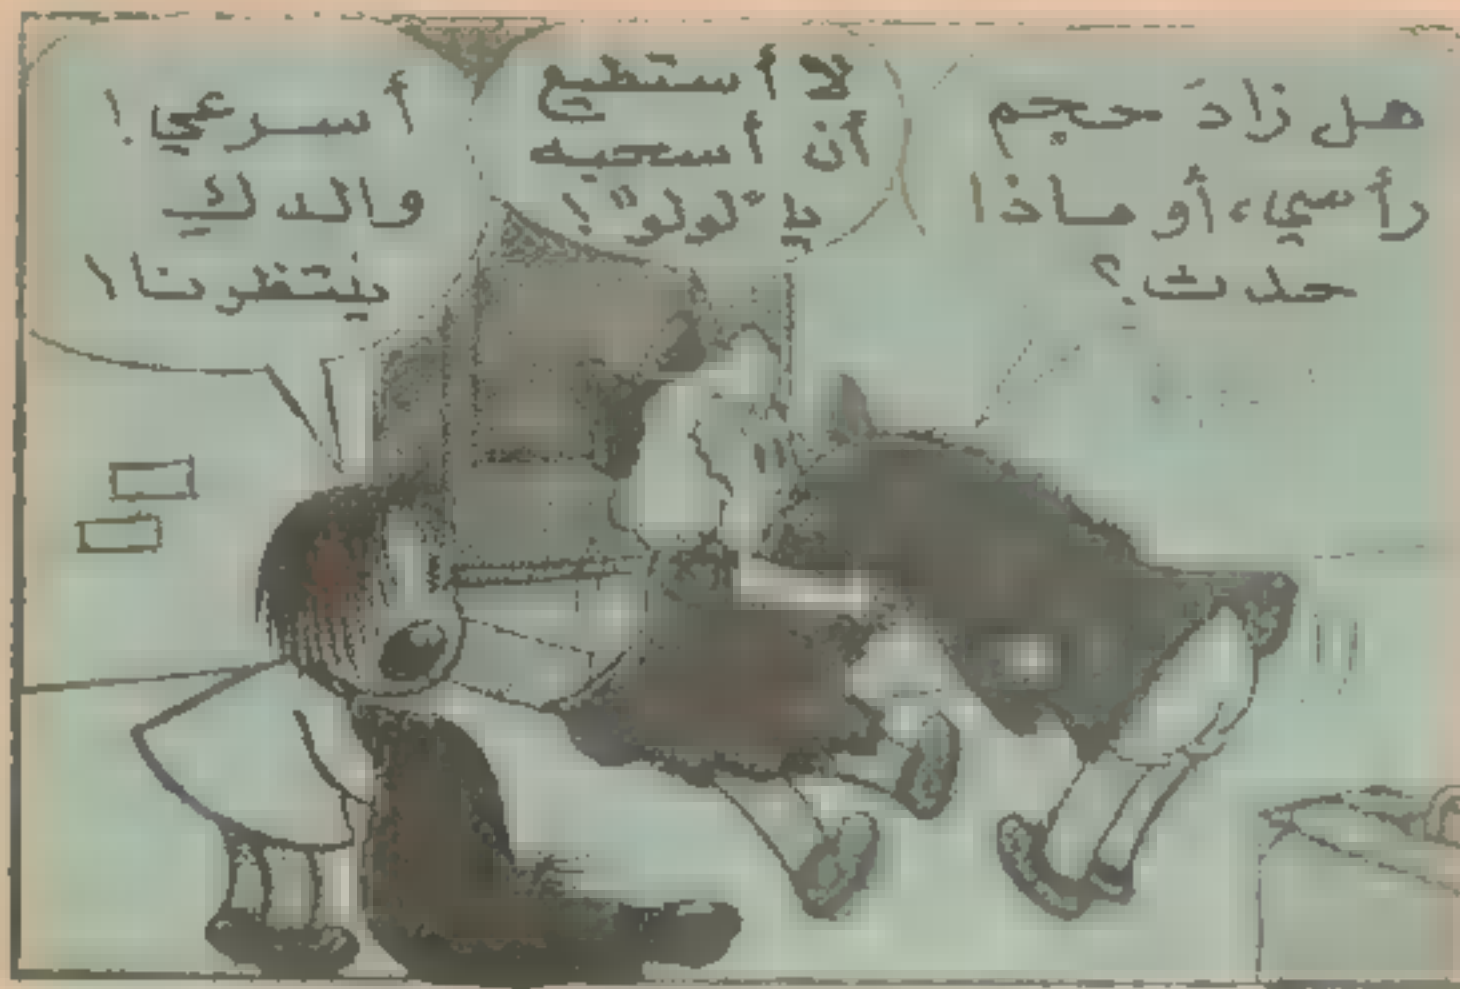 هل زادَ حجم
رأسي، أو ماذا
حدث؟
لا أستطيع
أن أسحبه
يا "لولو"!
أسرعي!
والدك
ينتظرنا!